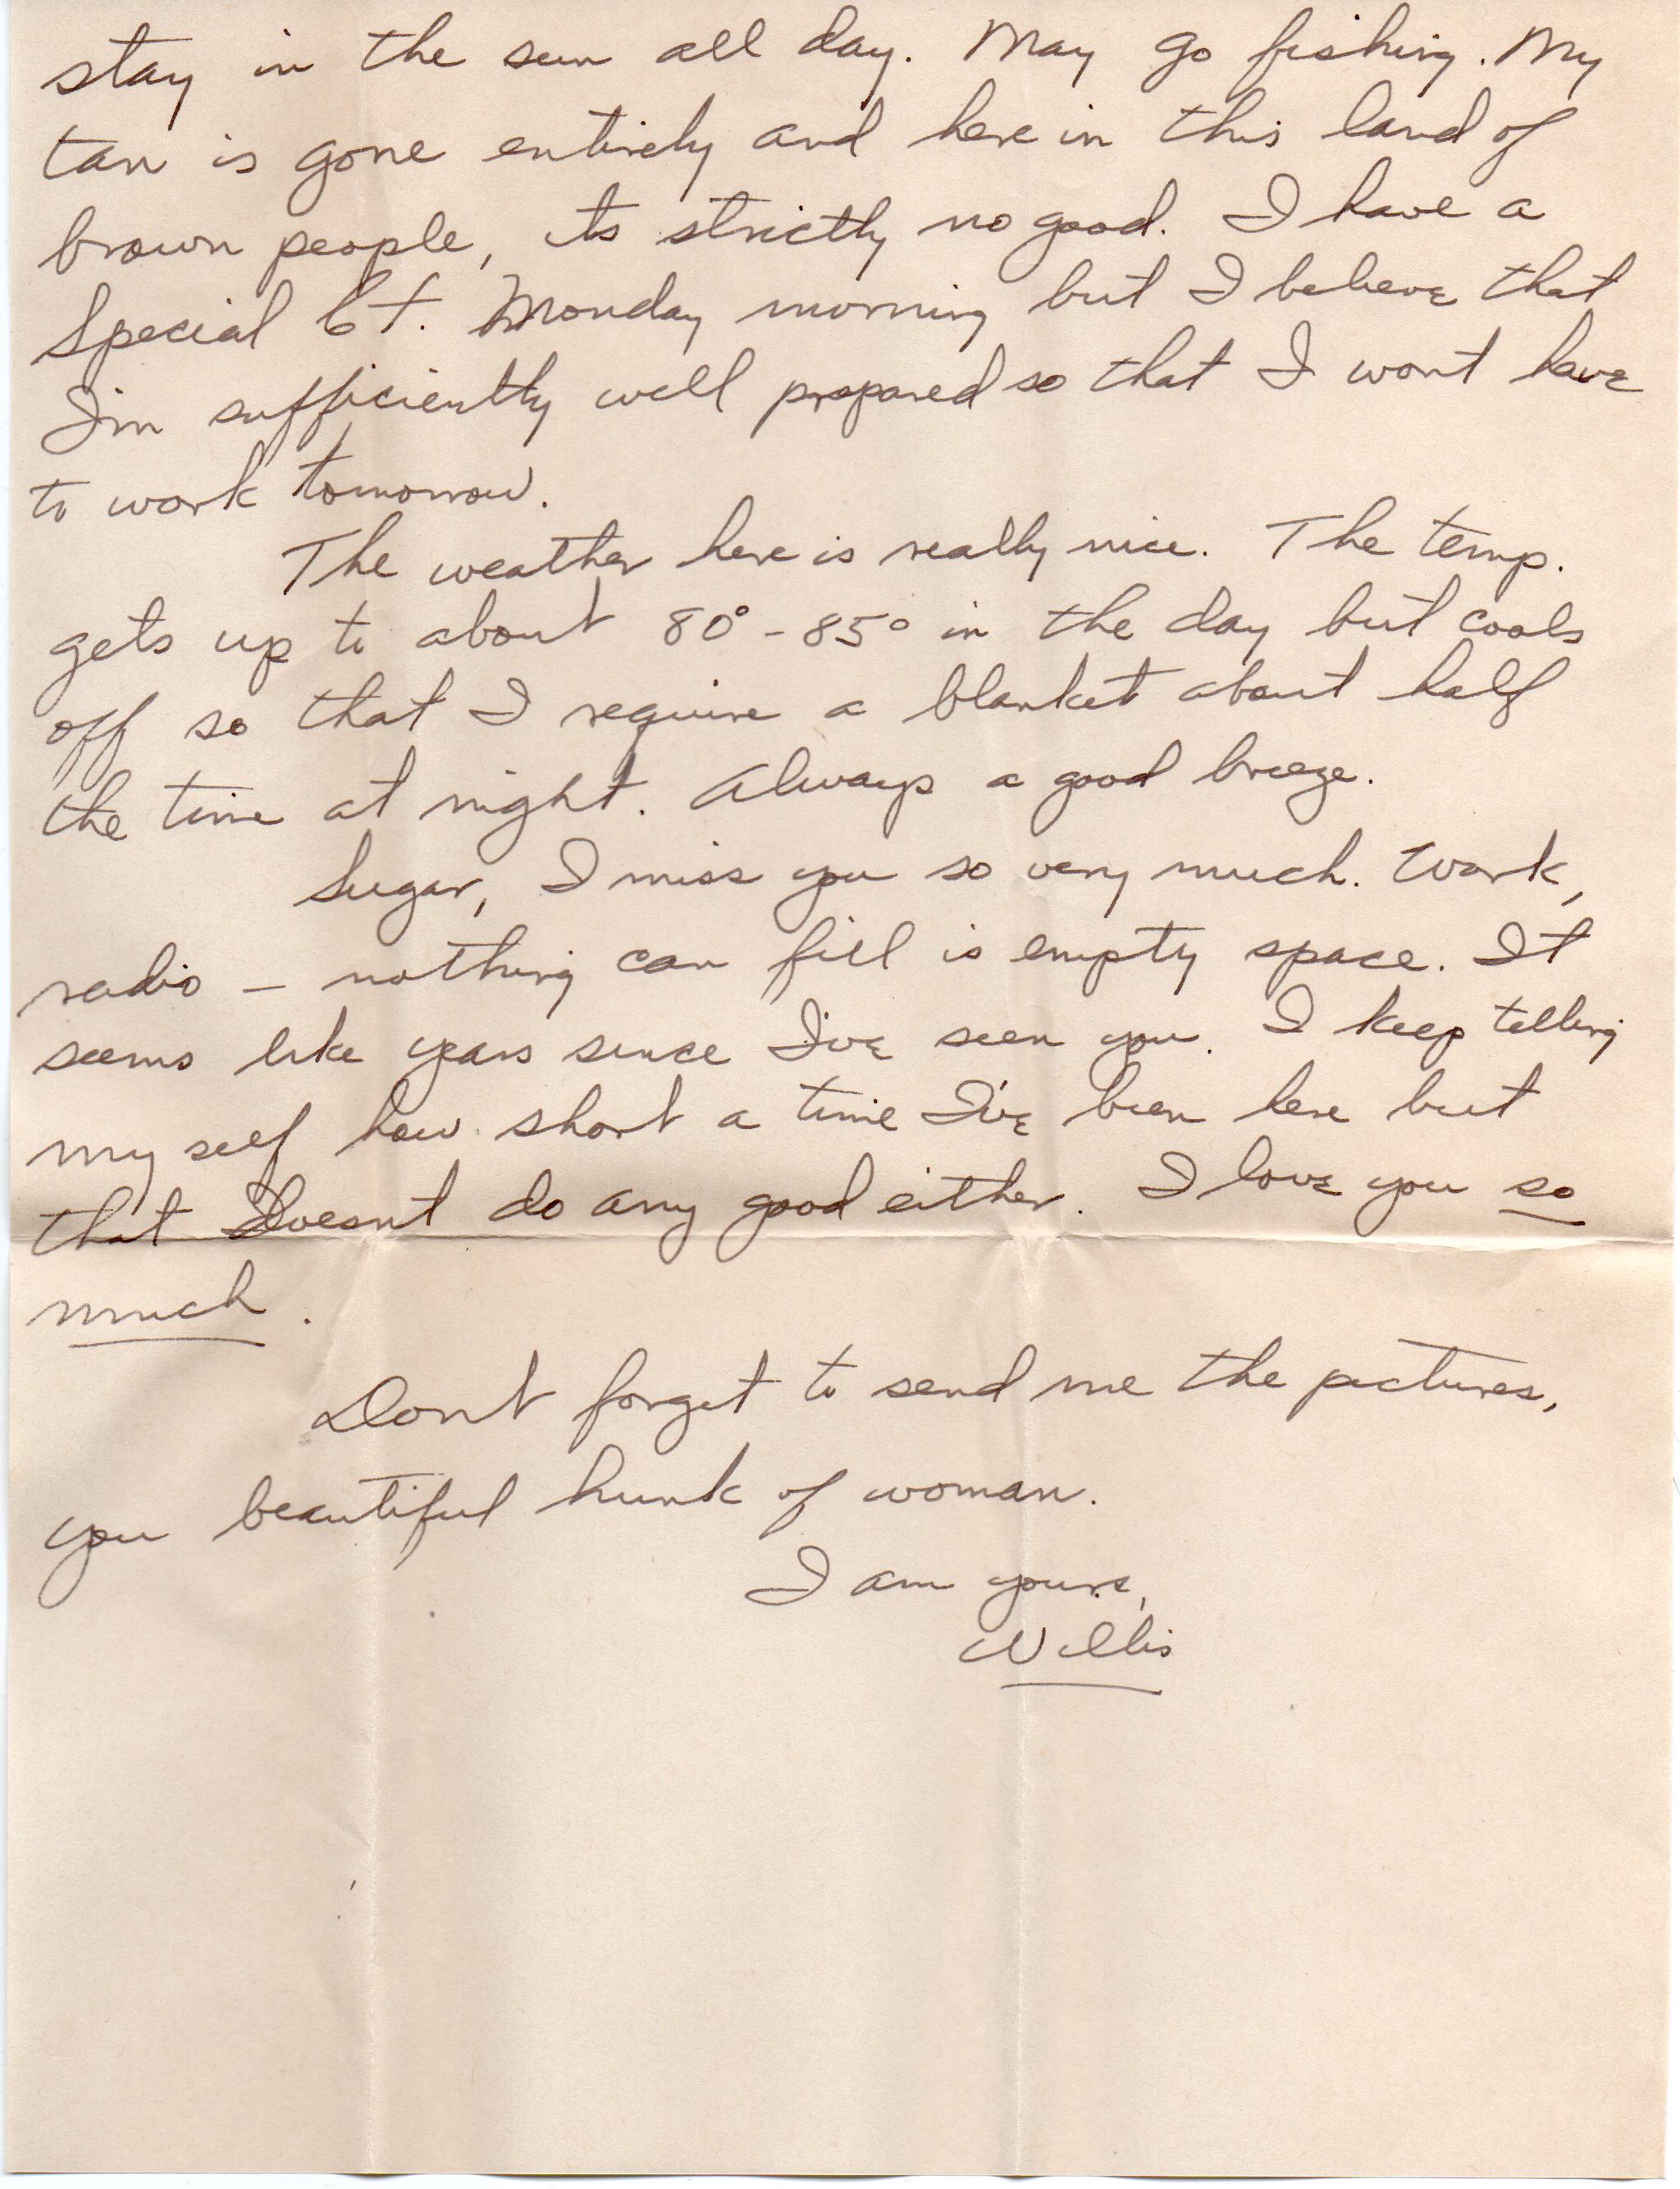 stay in the sun all day. May go fishing. My
tan is gone entirely and here in this land of
brown people, its strictly no good. I have a
Special Ct. Monday morning but I believe that
I'm sufficiently well prepared so that I wont have
to work tomorrow.
The weather here is really nice. The temp.
gets up to about 80° - 85° in the day but cools
off so that I require a blanket about half
the time at night. Always a good breeze.
Sugar, I miss you so very much. Work,
radio — nothing can fill is empty space. It
seems like years since I've seen you. I keep telling
my self how short a time I've been here but
that Doesnt do any good either. I love you so
much.
Dont forget to send me the pictures,
you beautiful hunk of woman.
I am yours,
Willis